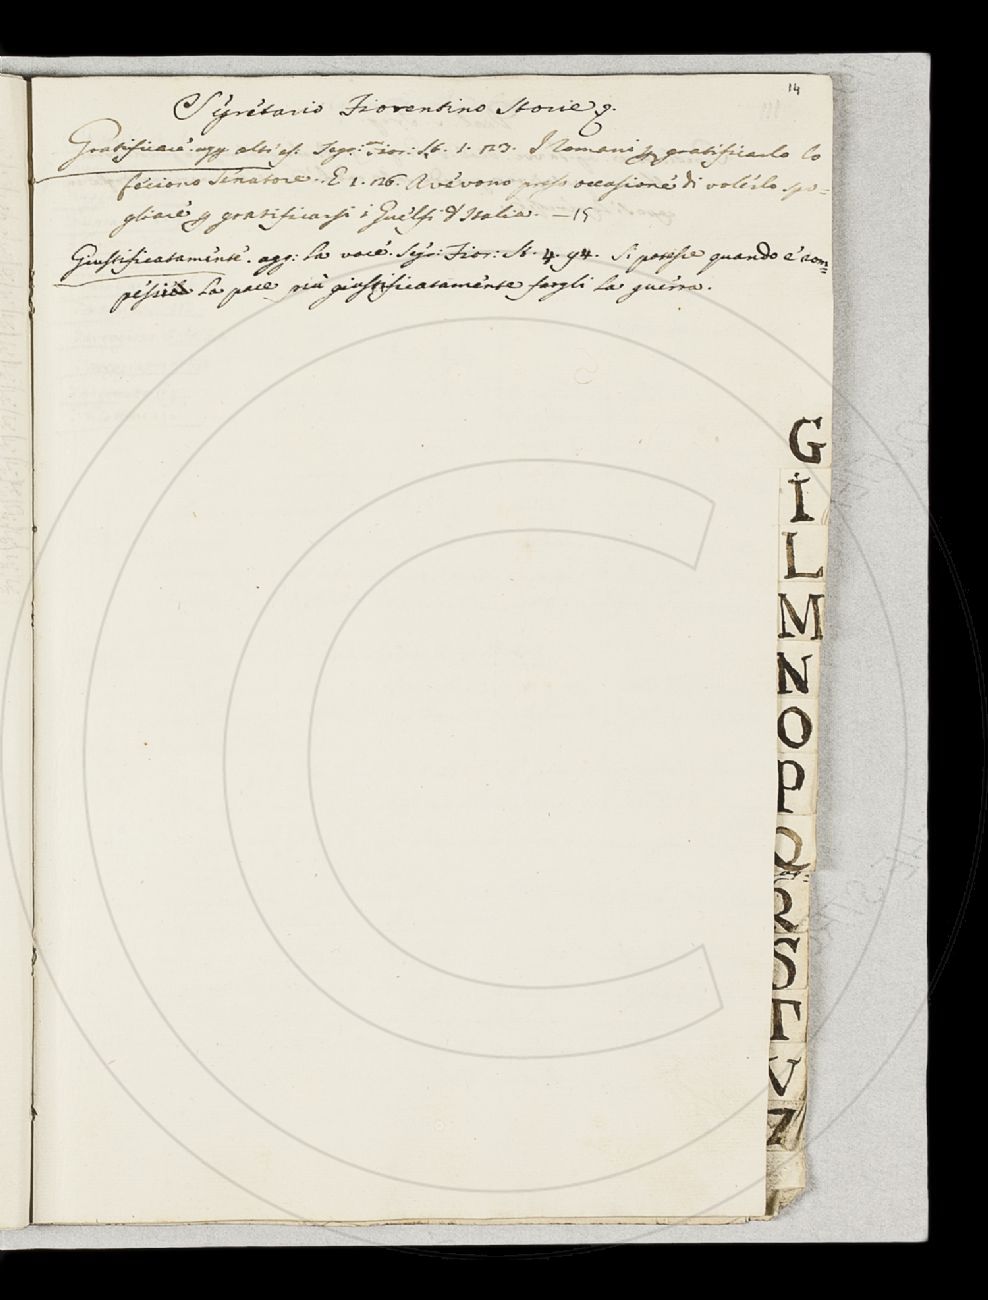 14
Segretario Fiorentino Storie g.
Gratificare. agg. altri es. Segr: Fior: St. 1. 123. I Romani p gratificarlo lo
feciono Senatore. E 1. 126. Avevono preso occasione di volerlo spo=
gliare p gratificarsi i Guelfi d'Italia. — 15
Giustificatamente. agg: la voce. Segr: Fior: St. 4. 94. Si potesse quando e' rom=
pessie la pace più giustificatamente fargli la guerra.
G
I
L
M
N
O
P
Q
R
S
T
V
Z